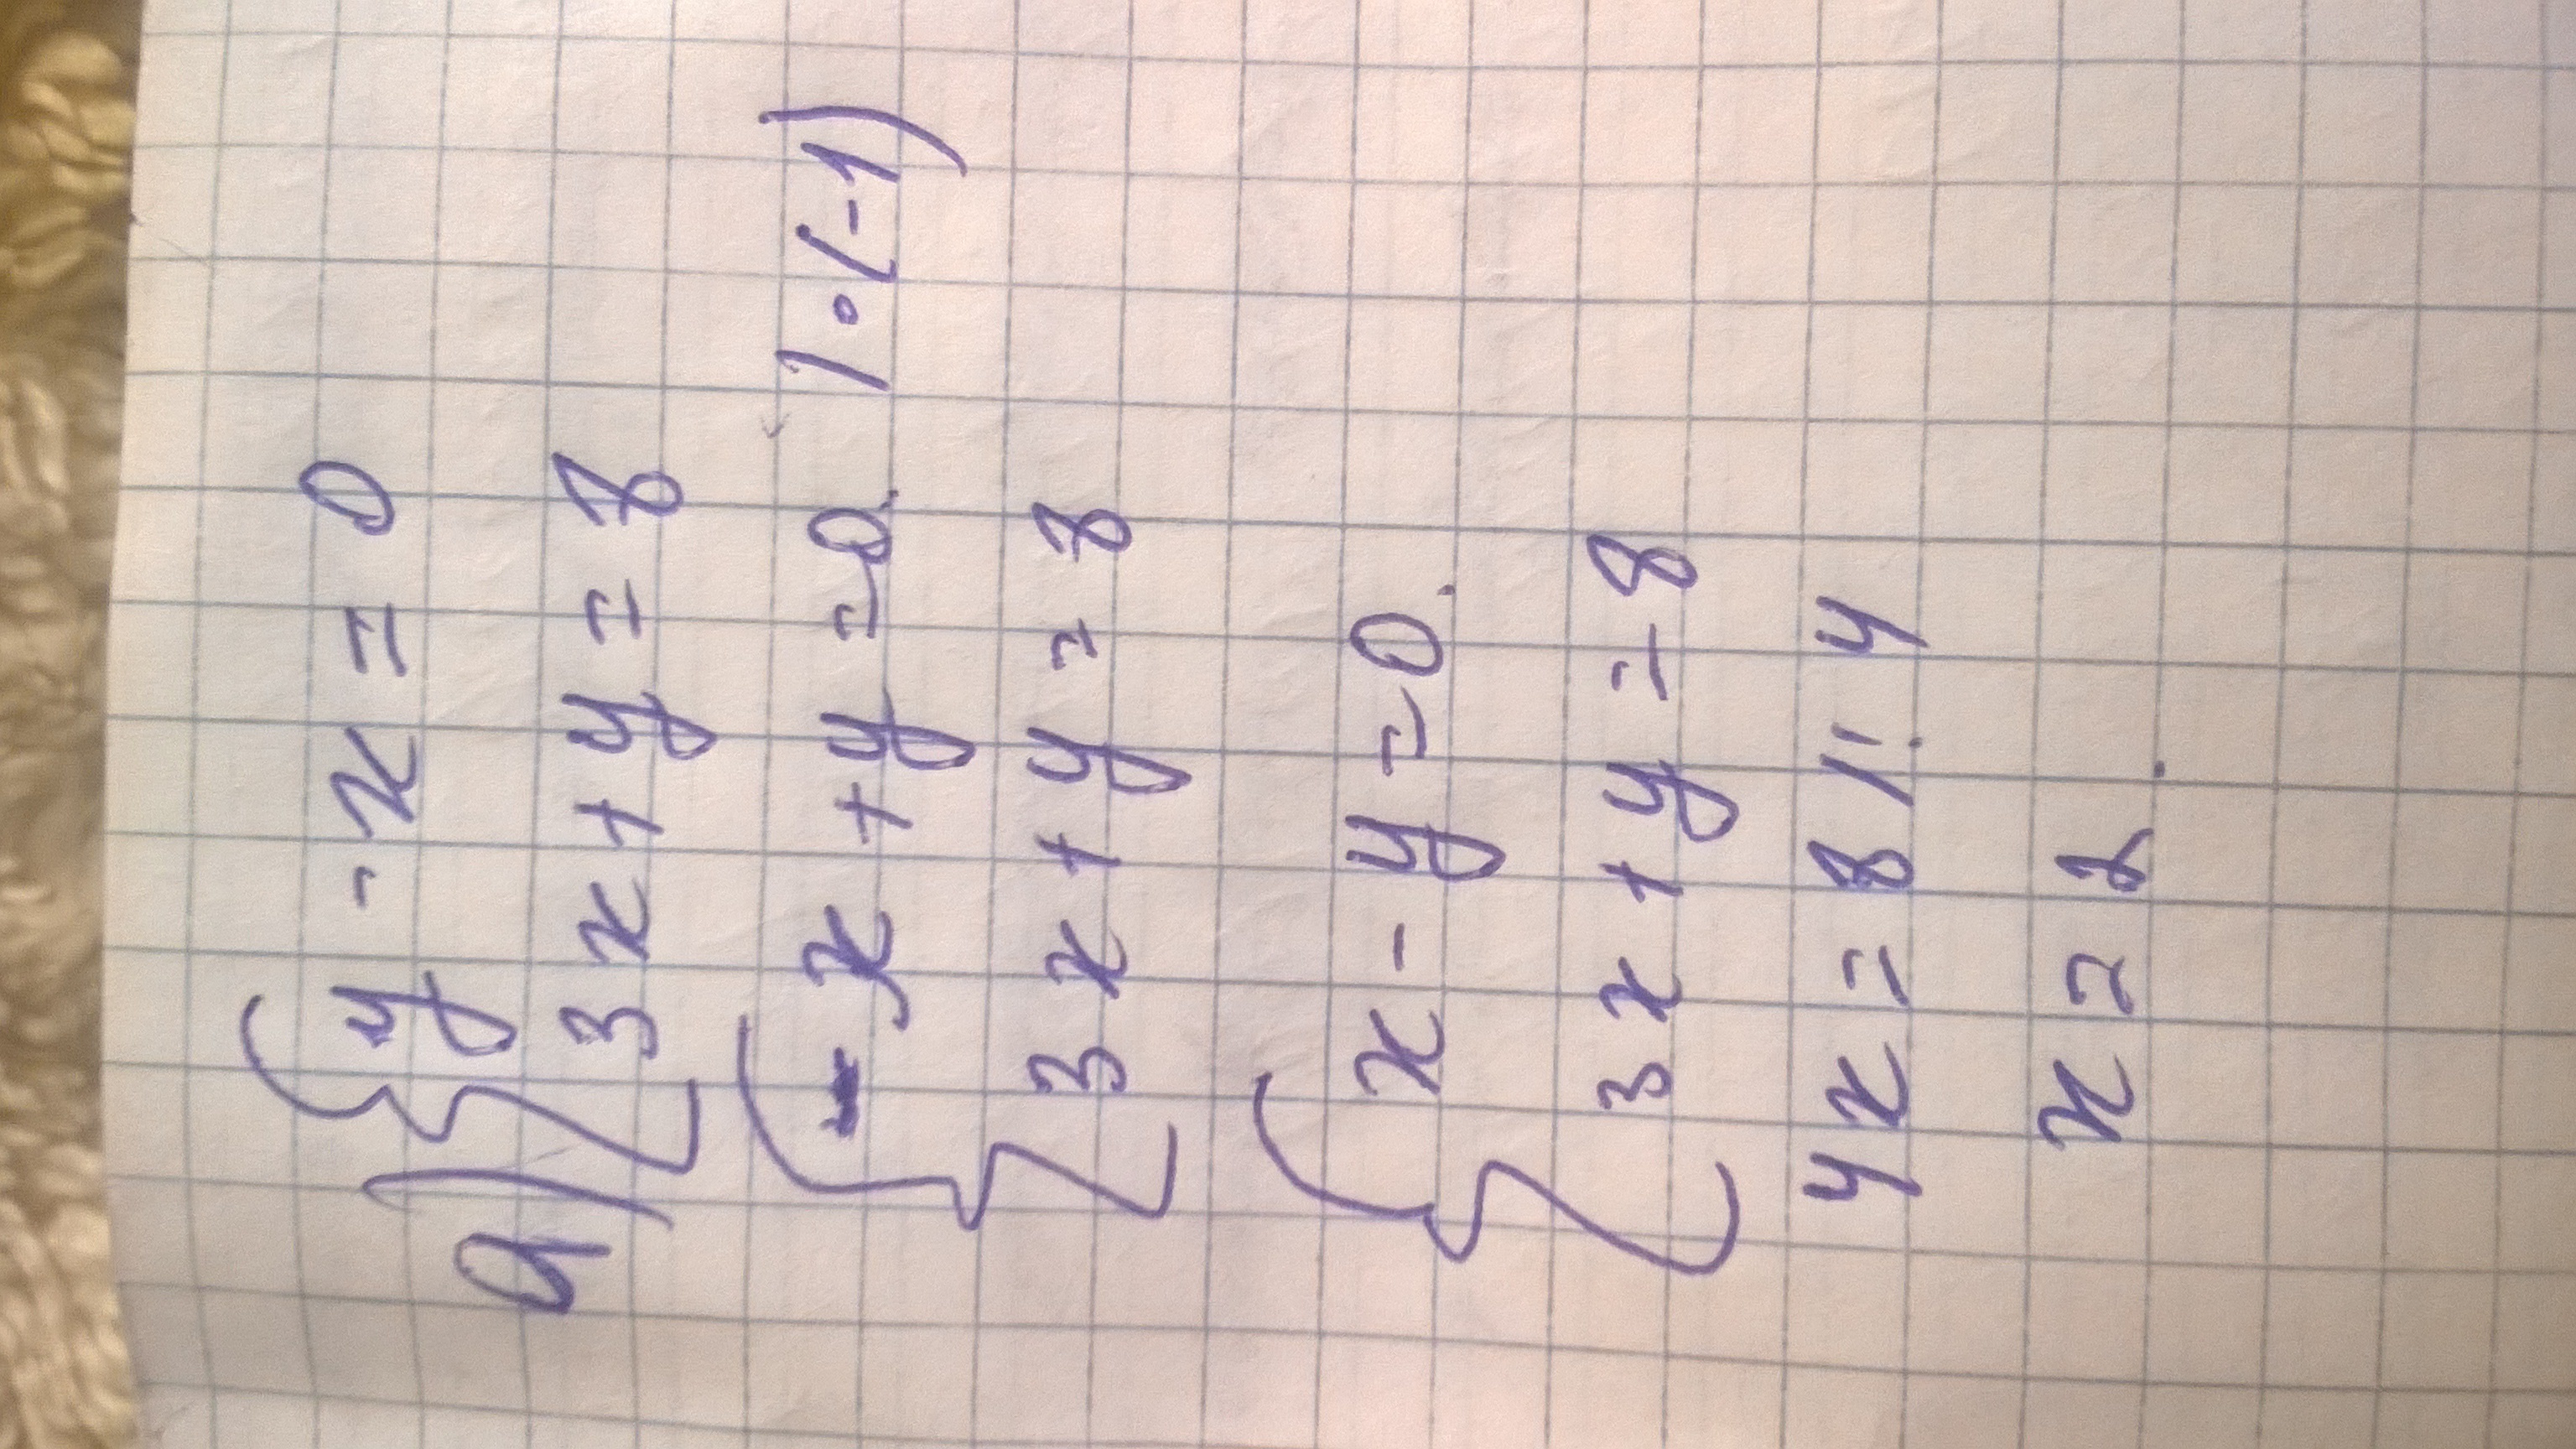 а) { y - x = 0
3x + y = 8
{ - x + y = 0. | • (-1)
3x + y = 8
{ x - y = 0.
3x + y = 8
4x = 8 | : 4
x = 2.